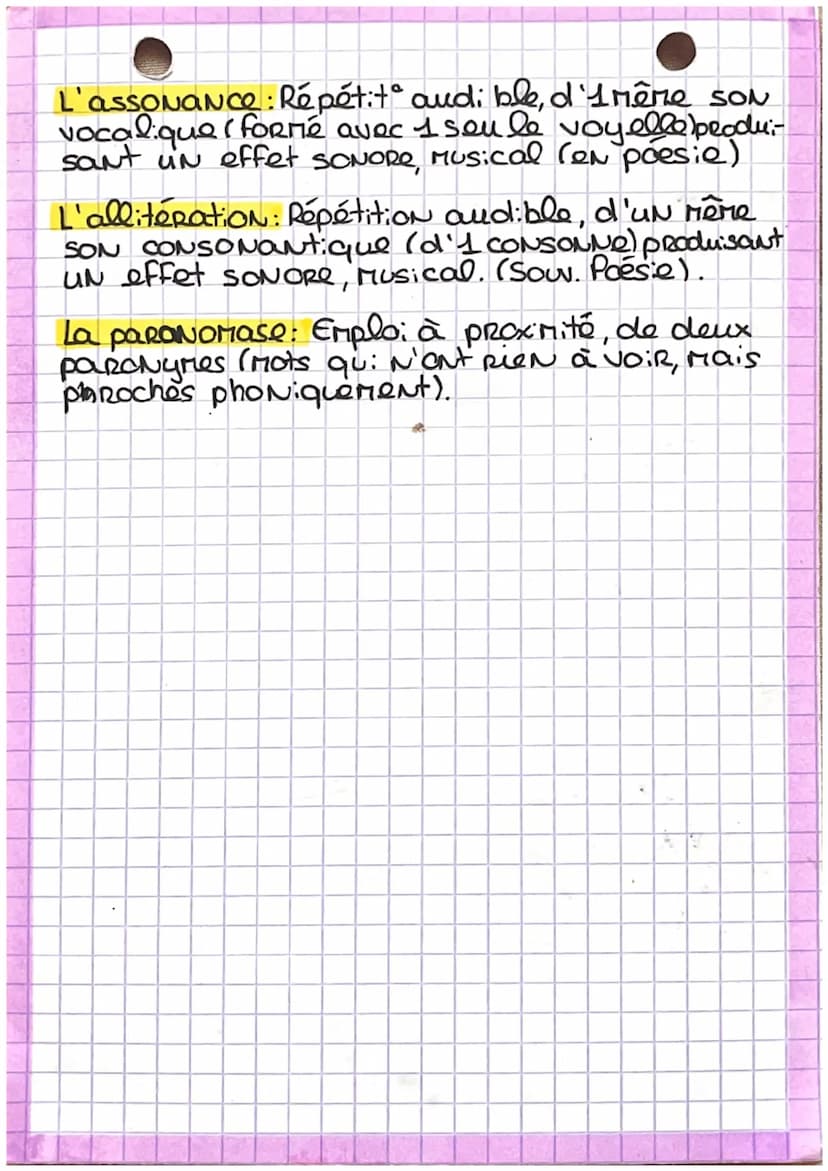 L'assonance : Répétit° audible, d'1 même son
vocalique (formé avec 1 seule voyelle) produi-
sant un effet sonore, musical (en poésie)
L'allitération : Répétition audible, d'un même
son consonantique (d'1 consonne) produisant
un effet sonore, musical. (Souv. Poésie).
La paronomase : Emploi à proximité, de deux
paronymes (mots qui n'ont rien à voir, mais
proches phoniquement).